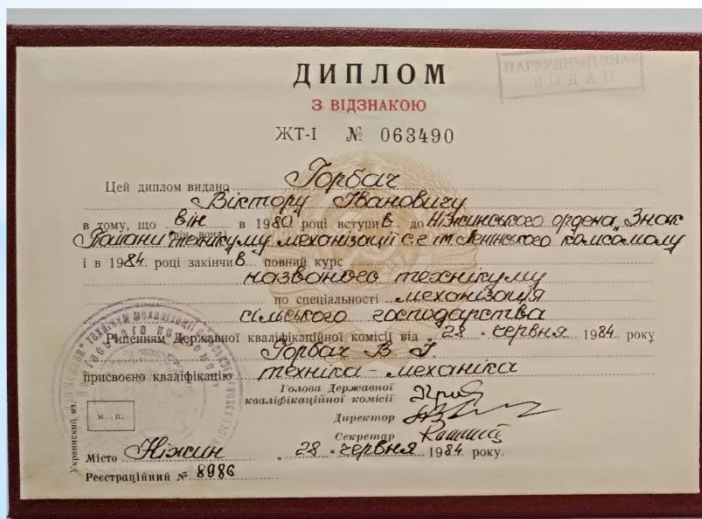 ДИПЛОМ
З ВІДЗНАКОЮ
ЖТ-І № 063490
Цей диплом видано Горбач
Віктору Івановичу
в тому, що він в 1980 році вступив до Ніжинського ордена „Знак
Пошани" технікуму механізації с.г. ім. Ленінського комсомолу
і в 1984 році закінчив повний курс
названого технікуму
по спеціальності механізація
сільського господарства
Рішенням Державної кваліфікаційної комісії від „28" червня 1984 року
Горбач В. І.
присвоєно кваліфікацію техніка-механіка
Голова Державної
кваліфікаційної комісії
Директор
М. П.
Секретар
Місто Ніжин „28" червня 1984 року.
Реєстраційний № 8986